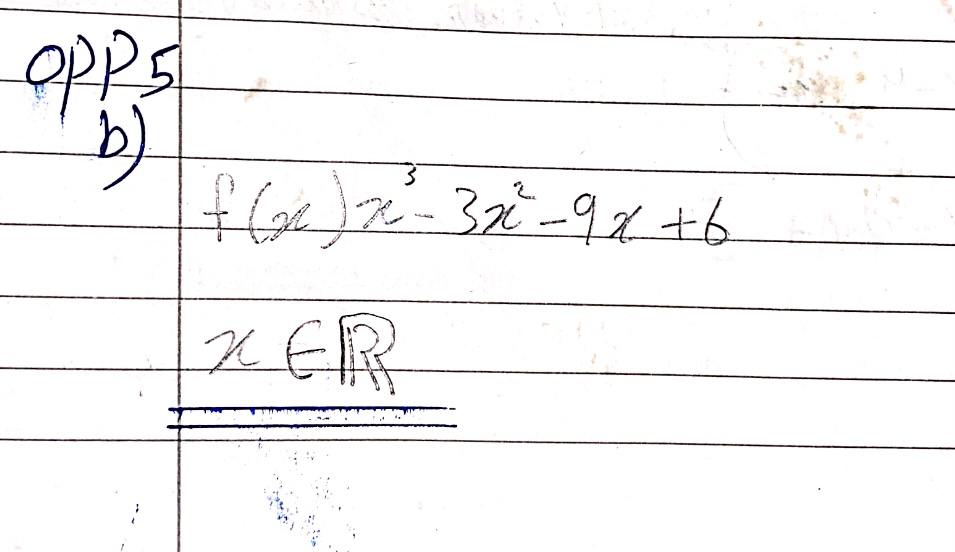 OPP5
b)
f(x) x³ - 3x² - 9x + 6
x ∈ ℝ